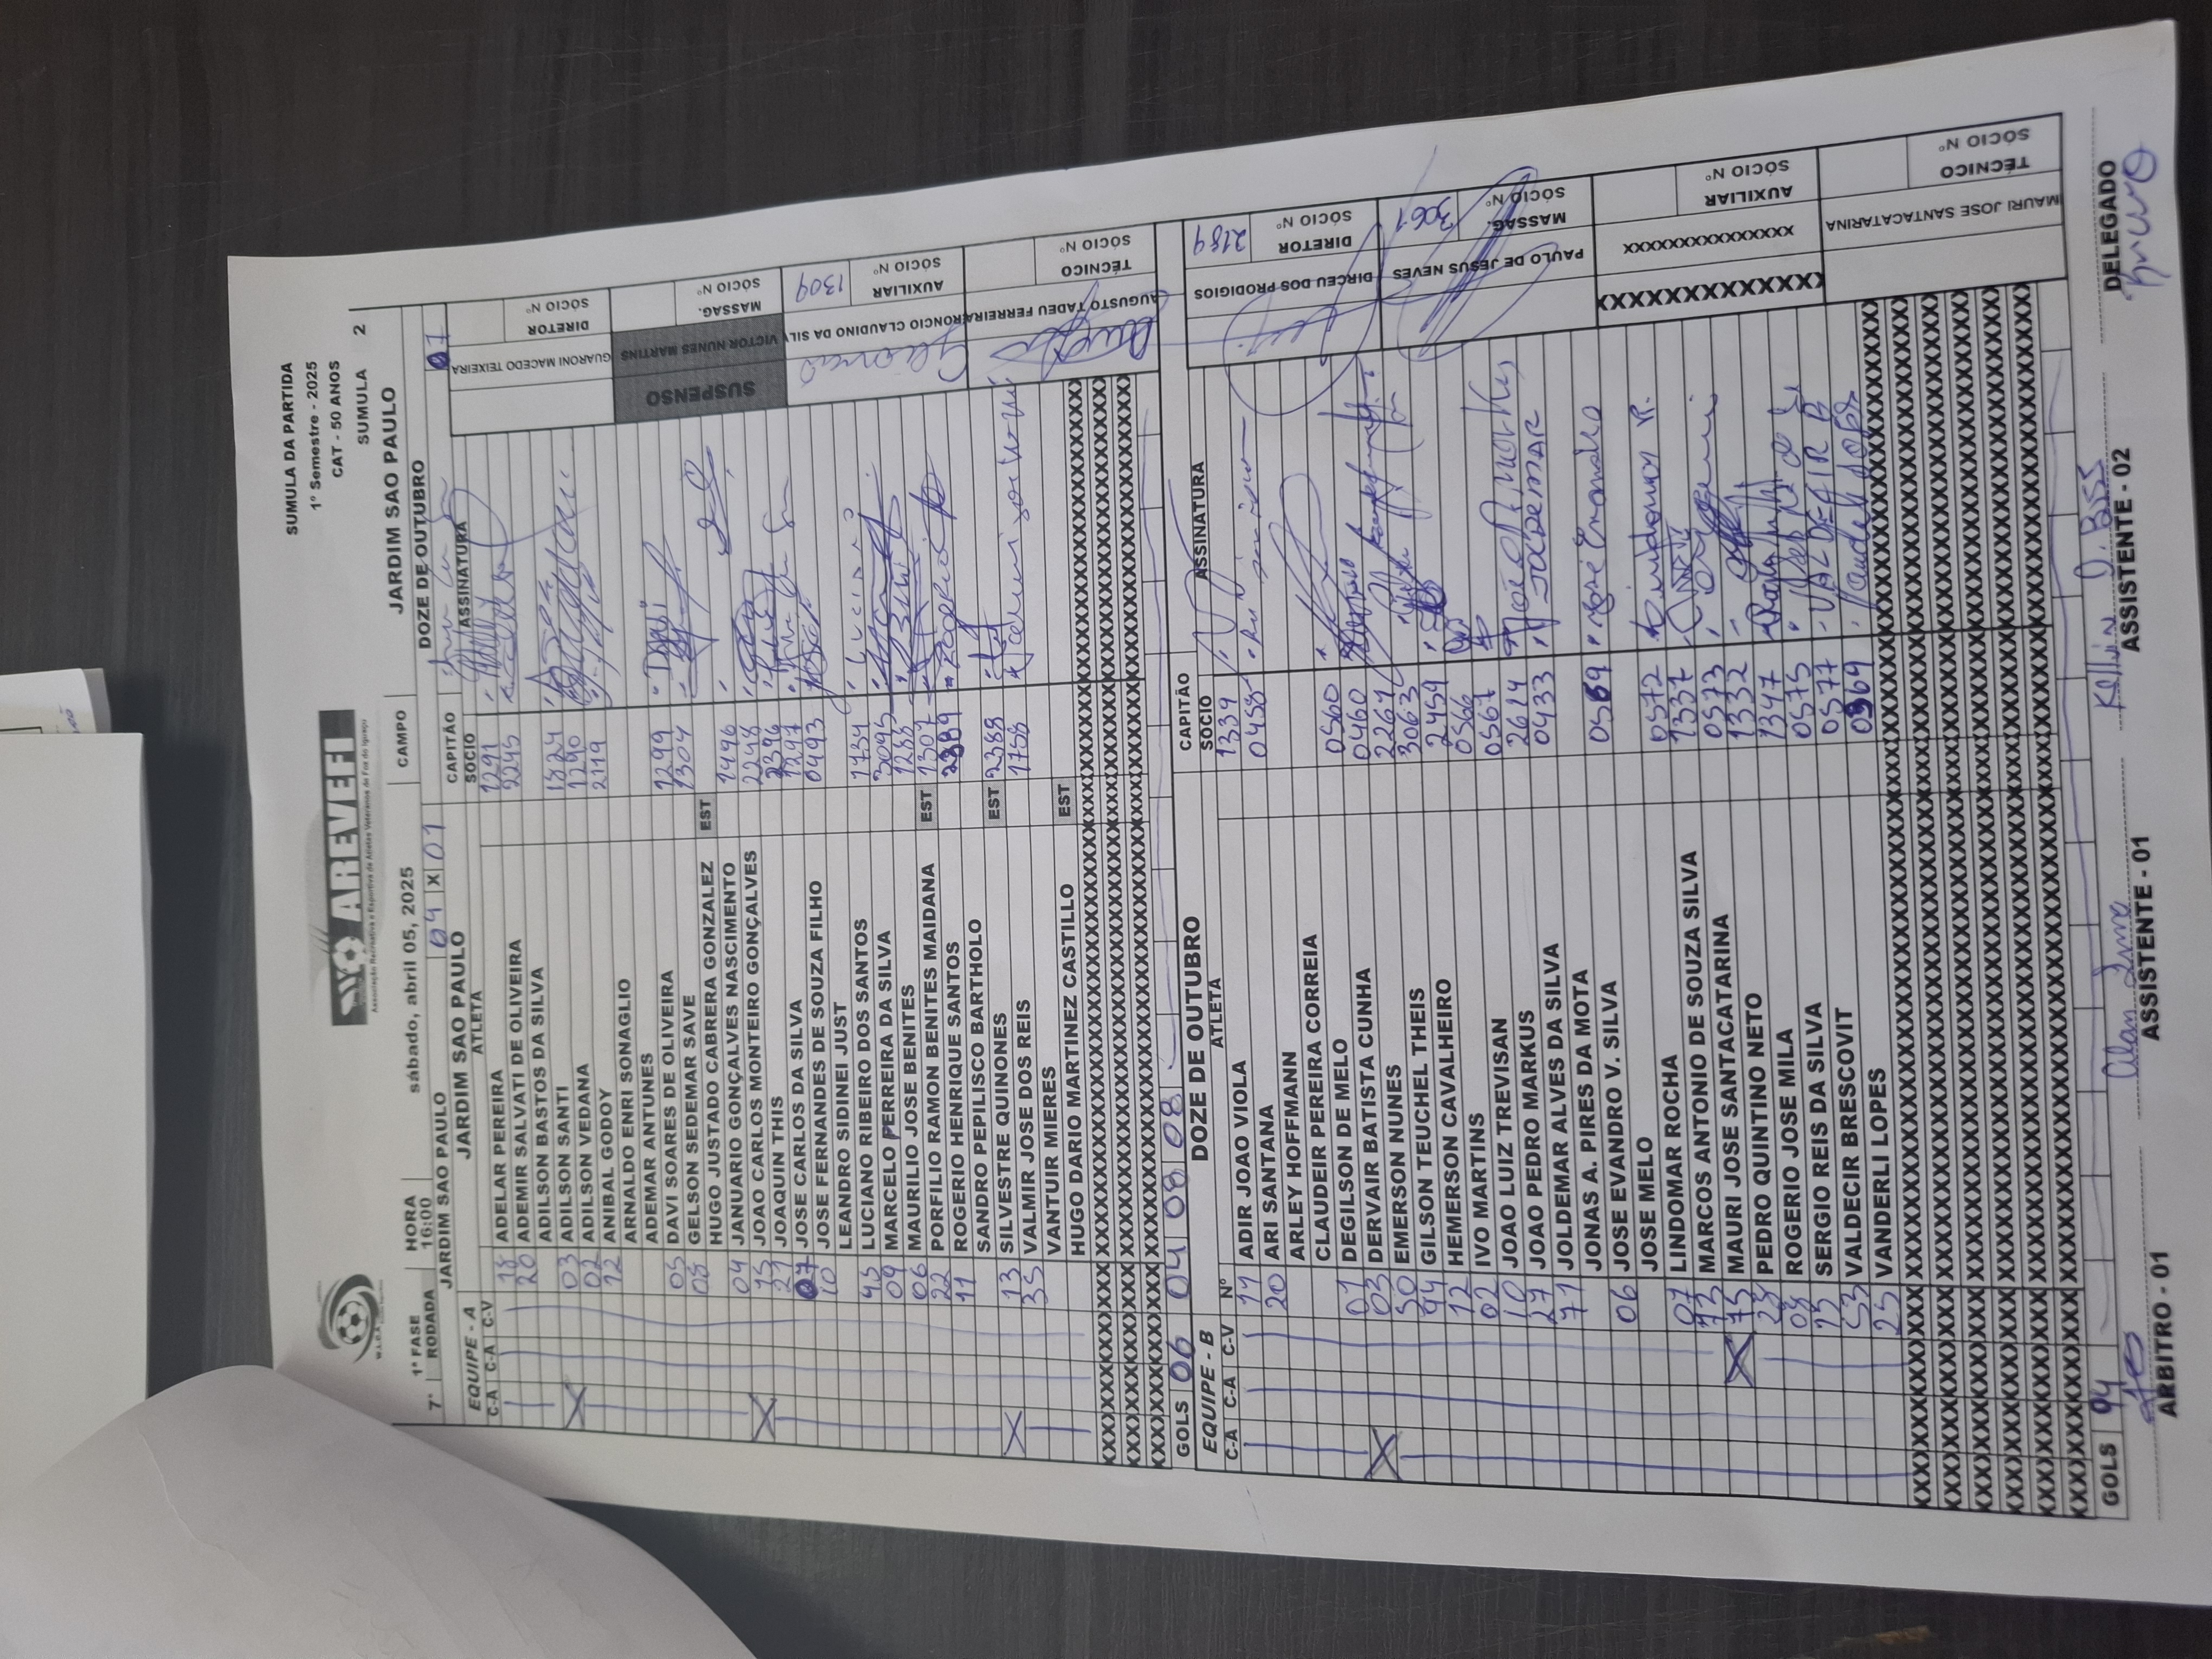 SUMULA DA PARTIDA
1º Semestre - 2025
CAT - 50 ANOS
SUMULA 2
AREVEFI
Associação Recreativa e Esportiva de Atletas Veteranos de Foz do Iguaçu
1ª FASE HORA sábado, abril 05, 2025 CAMPO JARDIM SAO PAULO
7ª RODADA 16:00
JARDIM SAO PAULO 04 X 01 DOZE DE OUTUBRO 07
EQUIPE - A JARDIM SAO PAULO CAPITÃO
C-A C-A C-V ATLETA SOCIO ASSINATURA
18 ADELAR PEREIRA 1291
20 ADEMIR SALVATI DE OLIVEIRA 2245
ADILSON BASTOS DA SILVA
03 ADILSON SANTI 1824
02 ADILSON VEDANA 1290
12 ANIBAL GODOY 2119
ARNALDO ENRI SONAGLIO
ADEMAR ANTUNES
05 DAVI SOARES DE OLIVEIRA 1299
08 GELSON SEDEMAR SAVE 1304
HUGO JUSTADO CABRERA GONZALEZ EST
04 JANUARIO GONÇALVES NASCIMENTO 1496
15 JOAO CARLOS MONTEIRO GONÇALVES 2248
21 JOAQUIN THIS 2396
07 JOSE CARLOS DA SILVA 1297
10 JOSE FERNANDES DE SOUZA FILHO 0493
LEANDRO SIDINEI JUST
45 LUCIANO RIBEIRO DOS SANTOS 1734
09 MARCELO PERREIRA DA SILVA 3095
06 MAURILIO JOSE BENITES 1288
22 PORFILIO RAMON BENITES MAIDANA EST 1307
11 ROGERIO HENRIQUE SANTOS 2389
SANDRO PEPILISCO BARTHOLO
13 SILVESTRE QUINONES EST 2388
35 VALMIR JOSE DOS REIS 1758
VANTUIR MIERES
HUGO DARIO MARTINEZ CASTILLO EST
GOLS 06 04 08 08
GUARONI MACEDO TEIXEIRA DIRETOR SÓCIO Nº
SUSPENSO VICTOR NUNES MARTINS MASSAG. SÓCIO Nº
RONCIO CLAUDINO DA SIL AUXILIAR SÓCIO Nº 1309
AUGUSTO TADEU FERREIRA TÉCNICO SÓCIO Nº
EQUIPE - B DOZE DE OUTUBRO CAPITÃO
C-A C-A C-V Nº ATLETA SOCIO ASSINATURA
11 ADIR JOAO VIOLA 1339
20 ARI SANTANA 0458
ARLEY HOFFMANN
CLAUDEIR PEREIRA CORREIA
01 DEGILSON DE MELO 0560
03 DERVAIR BATISTA CUNHA 0460
50 EMERSON NUNES 2267
44 GILSON TEUCHEL THEIS 3063
12 HEMERSON CAVALHEIRO 2459
02 IVO MARTINS 0566
10 JOAO LUIZ TREVISAN 0567
27 JOAO PEDRO MARKUS 2614
71 JOLDEMAR ALVES DA SILVA 0433 JOLDEMAR
JONAS A. PIRES DA MOTA
06 JOSE EVANDRO V. SILVA 0569
JOSE MELO
07 LINDOMAR ROCHA 0572 Lindomar R.
73 MARCOS ANTONIO DE SOUZA SILVA 1337
75 MAURI JOSE SANTACATARINA 0573
28 PEDRO QUINTINO NETO 1332
08 ROGERIO JOSE MILA 1347
15 SERGIO REIS DA SILVA 0575
VALDECIR BRESCOVIT 0577 VALDECIR B
25 VANDERLI LOPES 0969
GOLS 94
DIRCEU DOS PRODIGIOS DIRETOR SÓCIO Nº 2189
PAULO DE JESUS NEVES MASSAG. SÓCIO Nº 3061
XXXXXXXXXXXXXXX AUXILIAR SÓCIO Nº
MAURI JOSE SANTACATARINA TÉCNICO SÓCIO Nº
Alan
Kellvin D. Biss
Bruno
ARBITRO - 01 ASSISTENTE - 01 ASSISTENTE - 02 DELEGADO